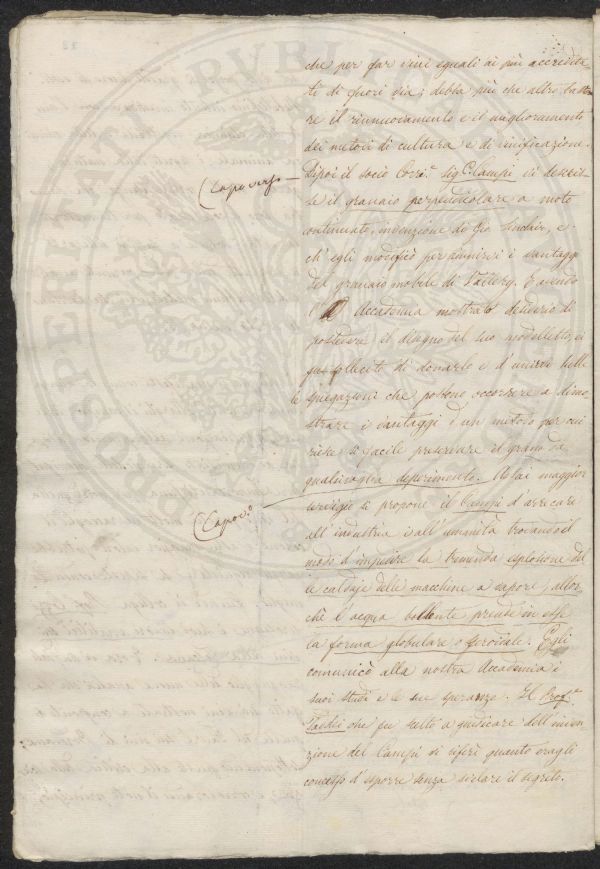 che per far vini eguali ai più accredita-
ti di fuori via; debba più che altro basta-
re il rinnuovamento e il miglioramento
dei metodi di cultura e di vinificazione.
(Capoverso
Dipoi il socio Corr.e Sig.e Campi ci descris-
se il granaio perpendicolare a moto
continuato, invenzione di Sinclair, e
ch'egli modificò per unirvi i vantaggi
del granaio mobile di Vallery. E avendo
l'Accademia mostrato desiderio di
possedere il disegno del suo modelletto, ei
fu sollecito di donarlo e d'unirvi tutte
le spiegazioni che possono occorrere a dimo-
strare i vantaggi d'un metodo per cui
riesce sì facile preservare il grano da
qualsivoglia deperimento. Assai maggior
(Capov.o
servigio si propone il Campi d'arrecare
all'industria e all'umanità trovando il
modo d'impedire la tremenda esplosione del-
le caldaje delle macchine a vapore, allor-
chè l'acqua bollente prende in esse
la forma globulare o sferoidale. Egli
comunicò alla nostra Accademia i
suoi studi e le sue speranze. Il Prof.e
Taddei che fu scelto a giudicare dell'inven-
zione del Campi ci riferì quanto eragli
concesso d'esporre senza svelare il segreto.
PROSPERITATI PUBLICAE